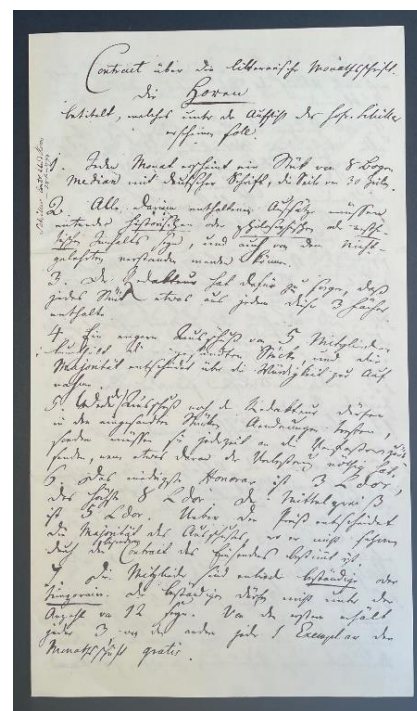 Contract über die litterarische Monathsschrift.
Die Horen
betitelt, welches unter der Aufsicht des Hofr. Schiller
erscheinen soll.
1. Jeden Monat erscheint ein Stück von 8 Bogen
Median mit deutscher Schrift, die Seite von 30 Zeilen.
2. Alle darinn enthaltenen Aufsätze müssen
entweder historischen oder philosophischen oder ästhe-
tischen Inhalts seyn, und auch von dem Nicht-
gelehrten verstanden werden können.
3. Der Redakteur hat dafür zu sorgen, daß
jedes Stück etwas aus jedem dieser 3 Fächer
enthalte.
4. Ein engerer Ausschuß von 5 Mitgliedern
beurtheilt die eingesandten Stücke und die
Majorität entscheidet über die Würdigkeit zur Auf-
nahme.
5. Weder Ausschuß noch der Redakteur dürfen
in den eingesandten Stücken Aenderungen machen,
sondern müssen sie jederzeit an die Verfasser zurück
senden, wenn etwas daran der Verbesserung nöthig hat.
6. Das niedrigste Honorar ist 3 Ldor,
das höchste 8 Ldor. Die Mittelpreiß
ist 5 Ldor. Ueber den Preiß entscheidet
die Majorität des Ausschusses, wo er nicht schon
durch den Contract des Einsenders bestimmt ist.
7. Die Mitglieder sind entweder beständige oder
. Die beständigen dürfen nicht unter der
Anzahl von 12 seyn. Von den ersten erhält
jeder 3, von den andern jeder 1 Exemplar der
Monathsschrift gratis.